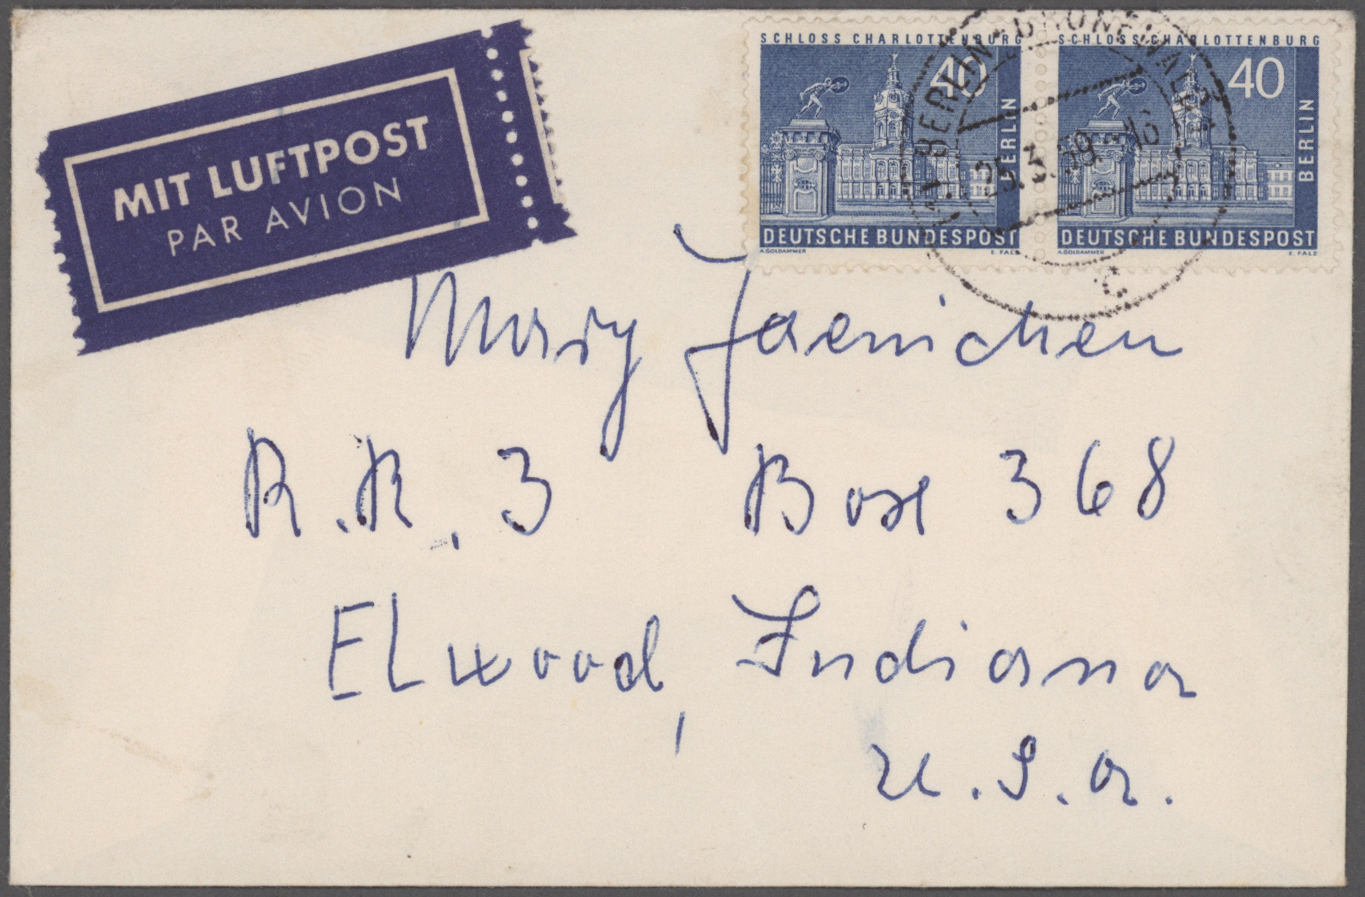 MIT LUFTPOST
PAR AVION
SCHLOSS CHARLOTTENBURG
40
BERLIN
DEUTSCHE BUNDESPOST
A.GOLDAMMER E. FALZ
SCHLOSS CHARLOTTENBURG
40
BERLIN
DEUTSCHE BUNDESPOST
A.GOLDAMMER E. FALZ
BERLIN-GRUNEWALD
25.3.59.-16
c
Mary Jaenichen
R.R. 3 Box 368
Elwood, Indiana
U.S.A.